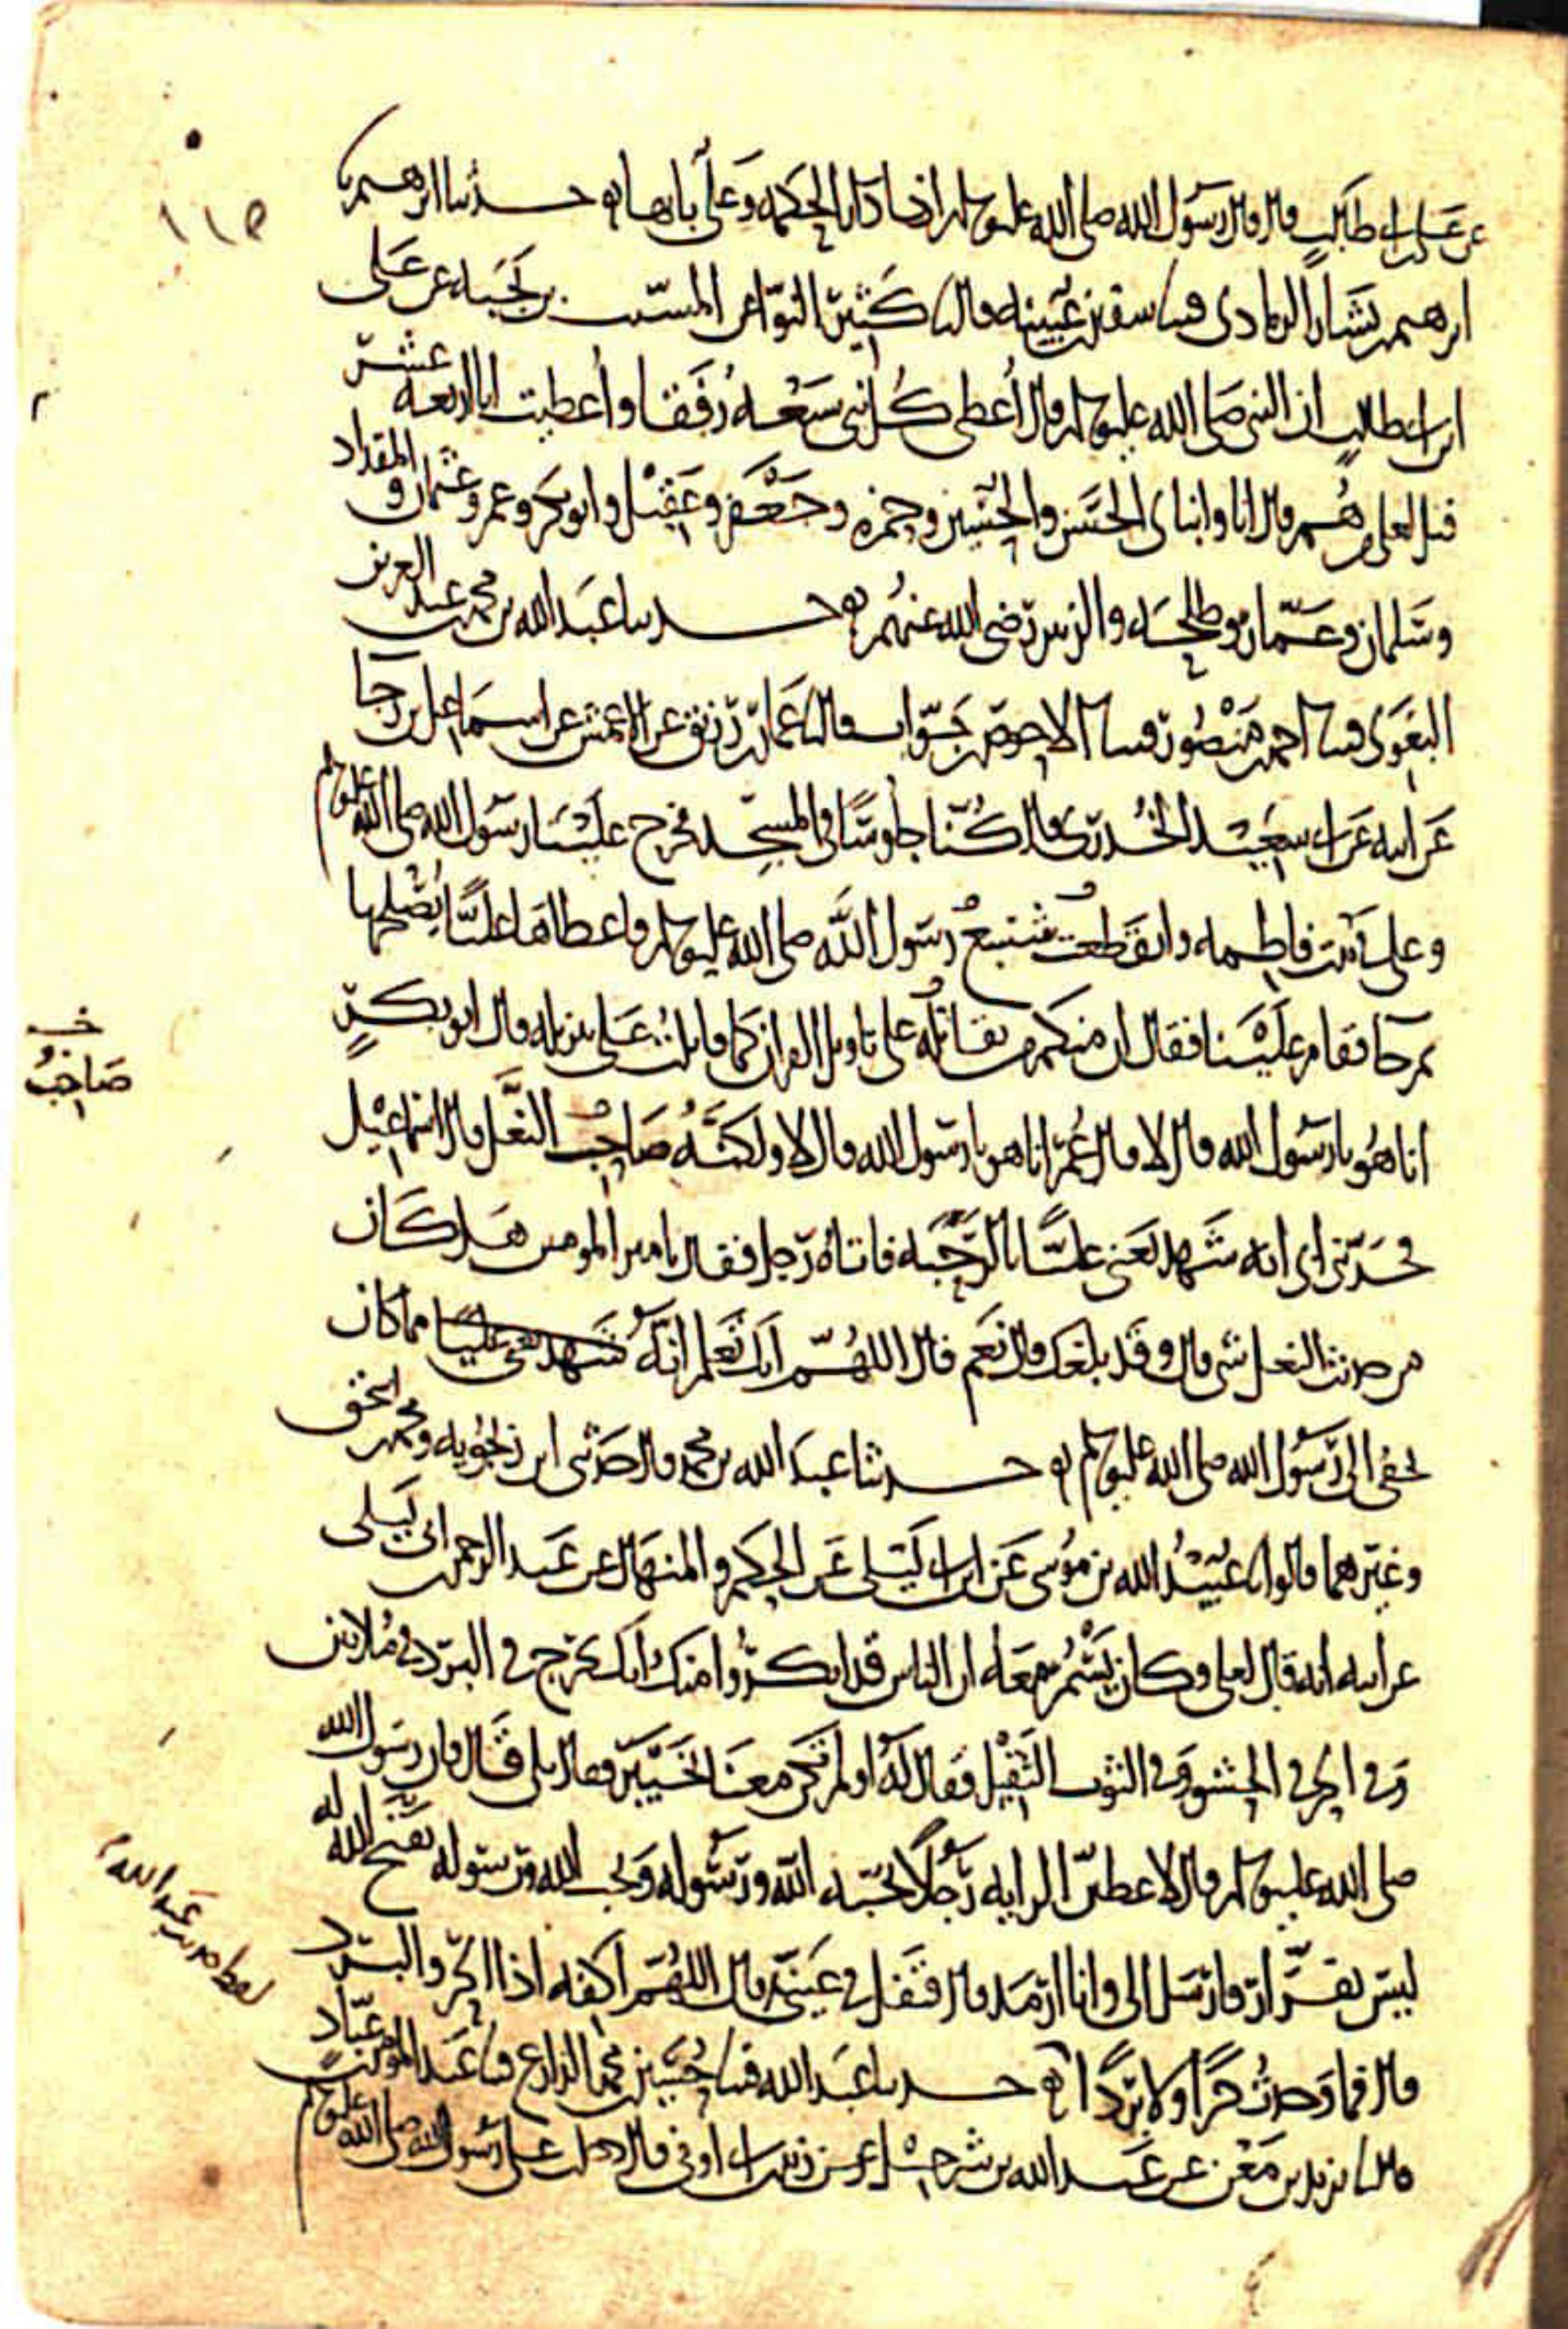 ١١٥
عن علي بن ابي طالب قال قال رسول الله صلى الله عليه وسلم انا دار الحكمة وعلي بابها حدثنا ابرهيم نا
ابرهيم بن بشار الرمادي قثنا سفين بن عيينة قال نا كثير النوا عن المسيب بن نجبة عن علي
ابن ابي طالب ان النبي صلى الله عليه وسلم قال أعطي كل نبي سبعة رفقا وأعطيت انا اربعة عشر
قيل لعلي من هم قال انا وابناي الحسن والحسين وحمزة وجعفر وعقيل وابو بكر وعمر وعثمان والمقداد
وسلمان وعمار وطلحة والزبير رضي الله عنهم حدثنا عبد الله بن محمد بن عبد العزيز
البغوي قثنا احمد بن منصور قثنا الاحوص بن جواب قال نا عمار بن رزيق عن الاعمش عن اسماعيل بن رجا
عن ابيه عن ابي سعيد الخدري قال كنا جلوسًا في المسجد فخرج علينا رسول الله صلى الله عليه وسلم
وعلي في بيت فاطمة وانقطعت شسع رسول الله صلى الله عليه وسلم فاعطاها عليًا يصلحها
ثم جا فقام علينا فقال ان منكم من يقاتل على تاويل القران كما قاتلت على تنزيله قال ابو بكرٍ
انا هو يا رسول الله قال لا قال عمر انا هو يا رسول الله قال لا ولكنه صاحب النعل قال اسماعيل
فحدثني ابي انه شهد يعني عليًا بالرحبة فاتاه رجل فقال يا امير المومنين هل كان
من حديث النعل شي قال وقد بلغك قال نعم قال اللهم انك تعلم انه شهد يعني عليًا مما كان
يخفي الي رسول الله صلى الله عليه وسلم حدثنا عبد الله بن محمد قال حدثني ابن زنجويه ومحمد بن اسحق
وغيرهما قالوا نا عبيد الله بن موسى عن ابن ابي ليلى عن الحكم والمنهال عن عبد الرحمن بن ابي ليلى
عن ابيه انه قال لعلي وكان يسمر معه ان الناس قد انكروا منك انك تخرج في البرد في ملاتين
وفي الحر في الحشو وفي الثوب الثقيل فقال له او لم تكن معنا بخيبر فقال بلى قال فان رسول الله
صلى الله عليه وسلم قال لاعطين الراية رجلًا يحبه الله ورسوله ويحب الله ورسوله يفتح الله له
ليس بفرار فارسل الي وانا ارمد قال فتفل في عيني قال اللهم اكفه اذا الحر والبرد
قال فما وجدت حرًا ولا بردًا حدثنا عبد الله قثنا حسين بن محمد الذارع قثنا عبد المومن بن عباد
قال نا يزيد بن معن عن عبد الله بن شرحبيل عن زيد بن ابي اوفى قال دخلت على رسول الله صلى الله عليه وسلم
خـ
صاحبُ